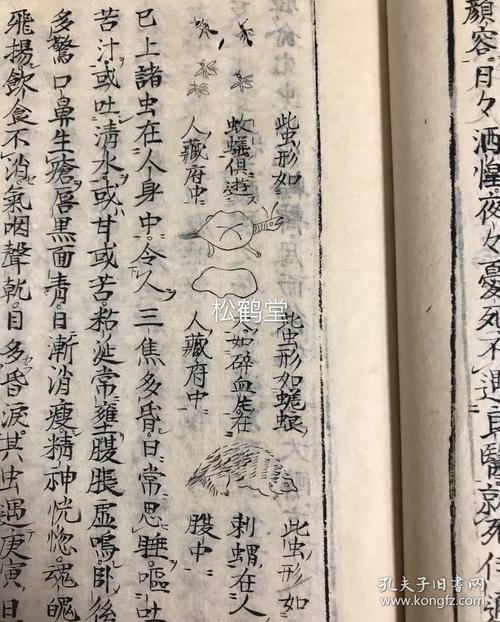 顏容日々洒惶夜々憂死不遇良醫就死
此虫形如
蚊蟻俱遊
人藏府中
此虫形如蜣蜋
又如碎血在
人藏府中
此虫形如
刺蝟在人
腹中
已上諸虫在人身中令人三焦多昏日常思睡嘔吐
苦汁或吐清水或甘或苦粘涎常壅腹脹虛鳴臥後
多驚口鼻生瘡唇黑面青日漸消瘦精神恍惚魂魄
飛揚飲食不消氣咽聲乾目多昏淚其虫遇庚寅日
松鹤堂
孔夫子旧书网
www.kongfz.com